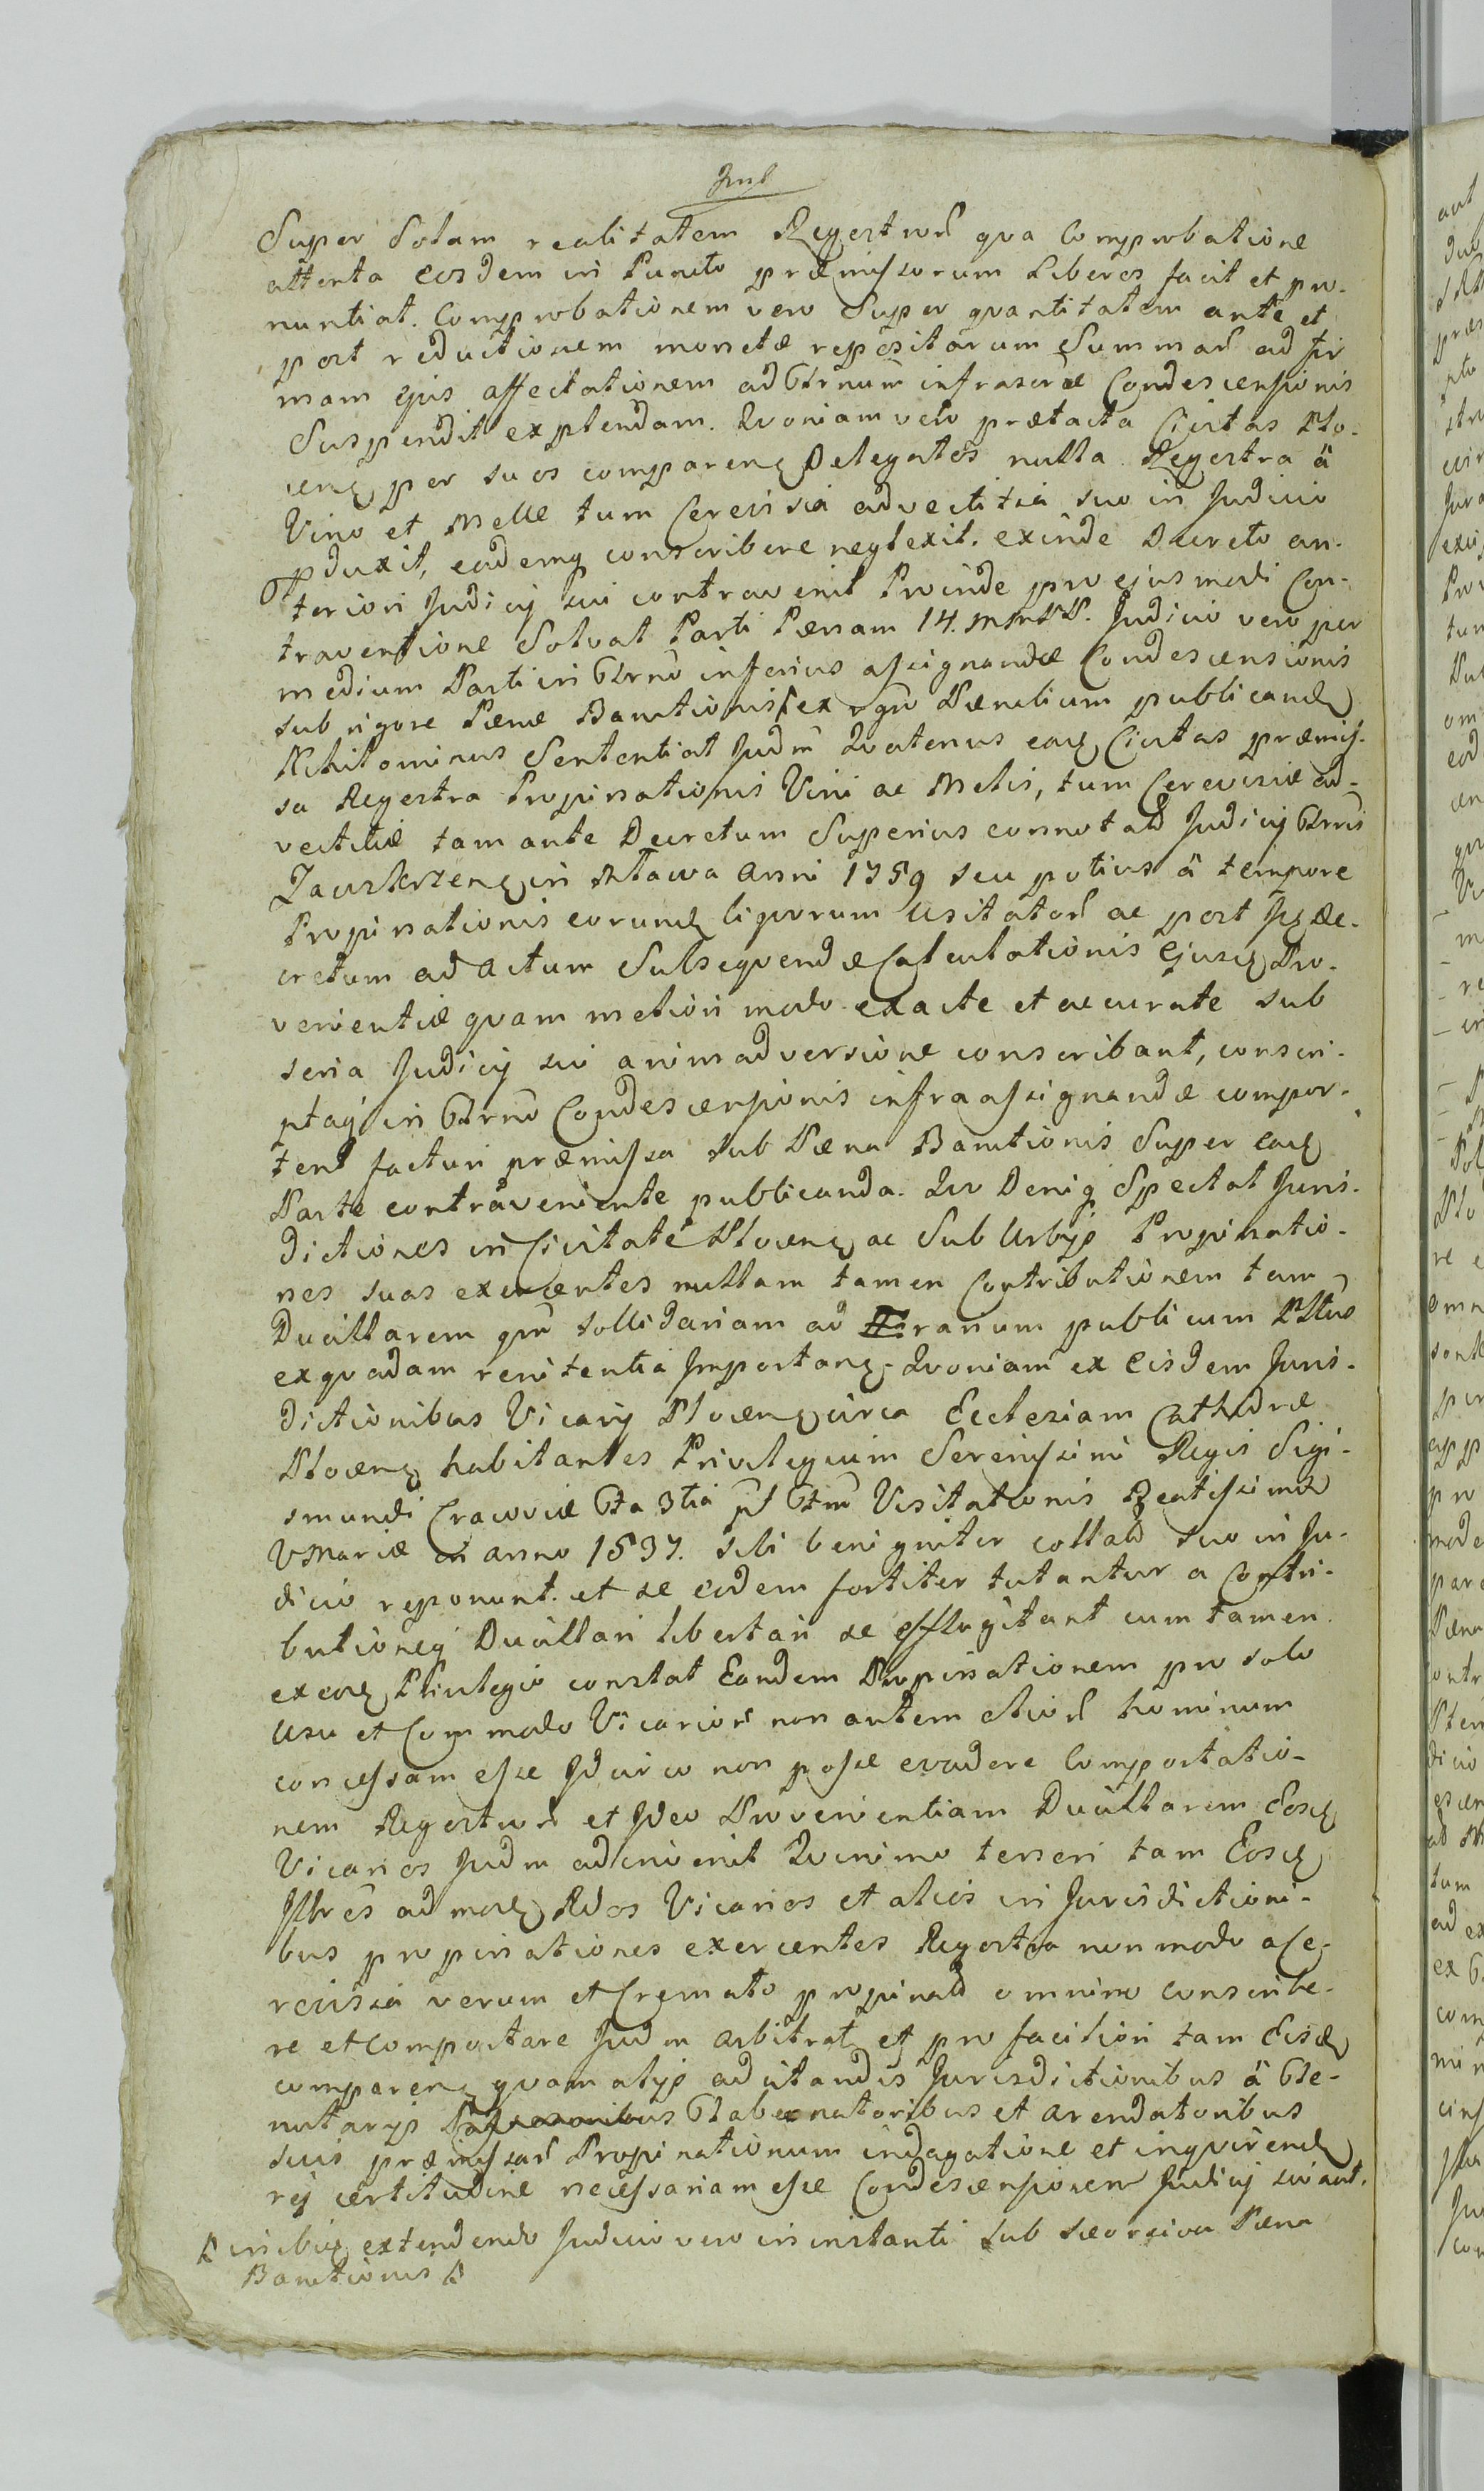 Super Solam realitatem Regestror̃ qva Comprobatione
attenta eosdem in Puncto præmissorum Liberos facit et pro-
nuntiat. Comprobationem vero Super qvantitatem ante et
post reductionem monetæ repositarum Summar̃ ad fir
mam ejus affectationem ad Ttrnum infrascræ Condescensionis
Suspendit explendam. Qvoniam vero prætacta Civitas Plo-
cenς per suos comparenς Delegatos nulla Regestra à
Vino et Melle tum Cerevisia advectitia suo in Judicio
pduxit, eademq conscribere neglexit. exinde Decreto an-
teriori Judicij sui contravenit Proinde pro ejusmodi Con-
traventione Solvat Parti Pænam 14. Judicio vero per
medium Parti in Ttrno inferius assignandæ Condescensionis
sub rigore Pænæ Banitionis ex rgro Pænalium publicandς
Nihilominus Sententiat Judm Qvatenus eadς Civitas præmis-
sa Regestra Propinationis Vini ac Melis, tum Cerevisiæ ad-
vectitiæ tam ante Decretum Superius connotatς Judicij Ttrnis
Zawskrzenς in Mława Anni 1759 seu potius à tempore
Propinationis eorundς liqvorum Usitator̃ ac post hς De-
cretum ad Actum Subseqvendæ Calculationis Ejusdς Pro-
venientiæ qvam meliori modo exacte et accurate sub
seria Judicij sui animadversione conscribant, conscri-
ptaq in Ttrno Condescensionis infra assignandæ compor-
tent facturi præmissa sub Pæna Banitionis Super eadς
Parte contraveniente publicanda. Qvo Deniq Spectat Juris-
dictiones in Civitate Plocenς ac Sub Urbijs Propinatio-
nes suas exercentes nullam tamen Contributionem tam
Ducillarem qm̃ sollidariam ad Æranum publicum Pltus
ex qvadam renitentia Importanς. Qvoniam ex Eisdem Juris-
dictionibus Vicarij Plocenς circa Ecclesiam Cathedræ
Plocenς habitantes Privilegium Serenissimi Regis Sigi-
smundi Cracoviæ Fta 3tia Ftm Visitationis Beatissimæ
VMariæ in anno 1537. sibi benigniter collatς suo in Ju-
dicio reponunt. et se eodem fortiter tutantur a Contri-
butioneq Ducillari libertari se efflagitant cum tamen
ex eodς Privilegio constat Eandem Propinationem pro solo
usu et Commodo Vicarior̃ non autem alior̃ hominum
concessam esse Idcirco non posse evadere Comportatio-
nem Regestror̃ et Ideo Provenientiam Ducillarem Eosdς
Vicarios Judm adinvenit Qvinimo teneri tam Eosdς
Illres admodς Rdos Vicarios et alios in Jurisdictioni-
bus propinationes exercentes Regestra non modo a Ce-
revisia verum et Cremato propinatς omnino conscribe-
re et comportare Judm arbitratς et pro faciliori tam Eisdς
comparenς qvam alijs ad citandis Jurisdictionibus à The-
nutarijs Tabernatoribus et arendatoribus
suis præmissar̃ Propinationum indagatione et inqvirendς
rej certitudine necessariam esse Condescensionem Judicij sui aut.
in ibidς extendendo Judicio vero in instanti sub sæorsiva Pæna
Banitionis